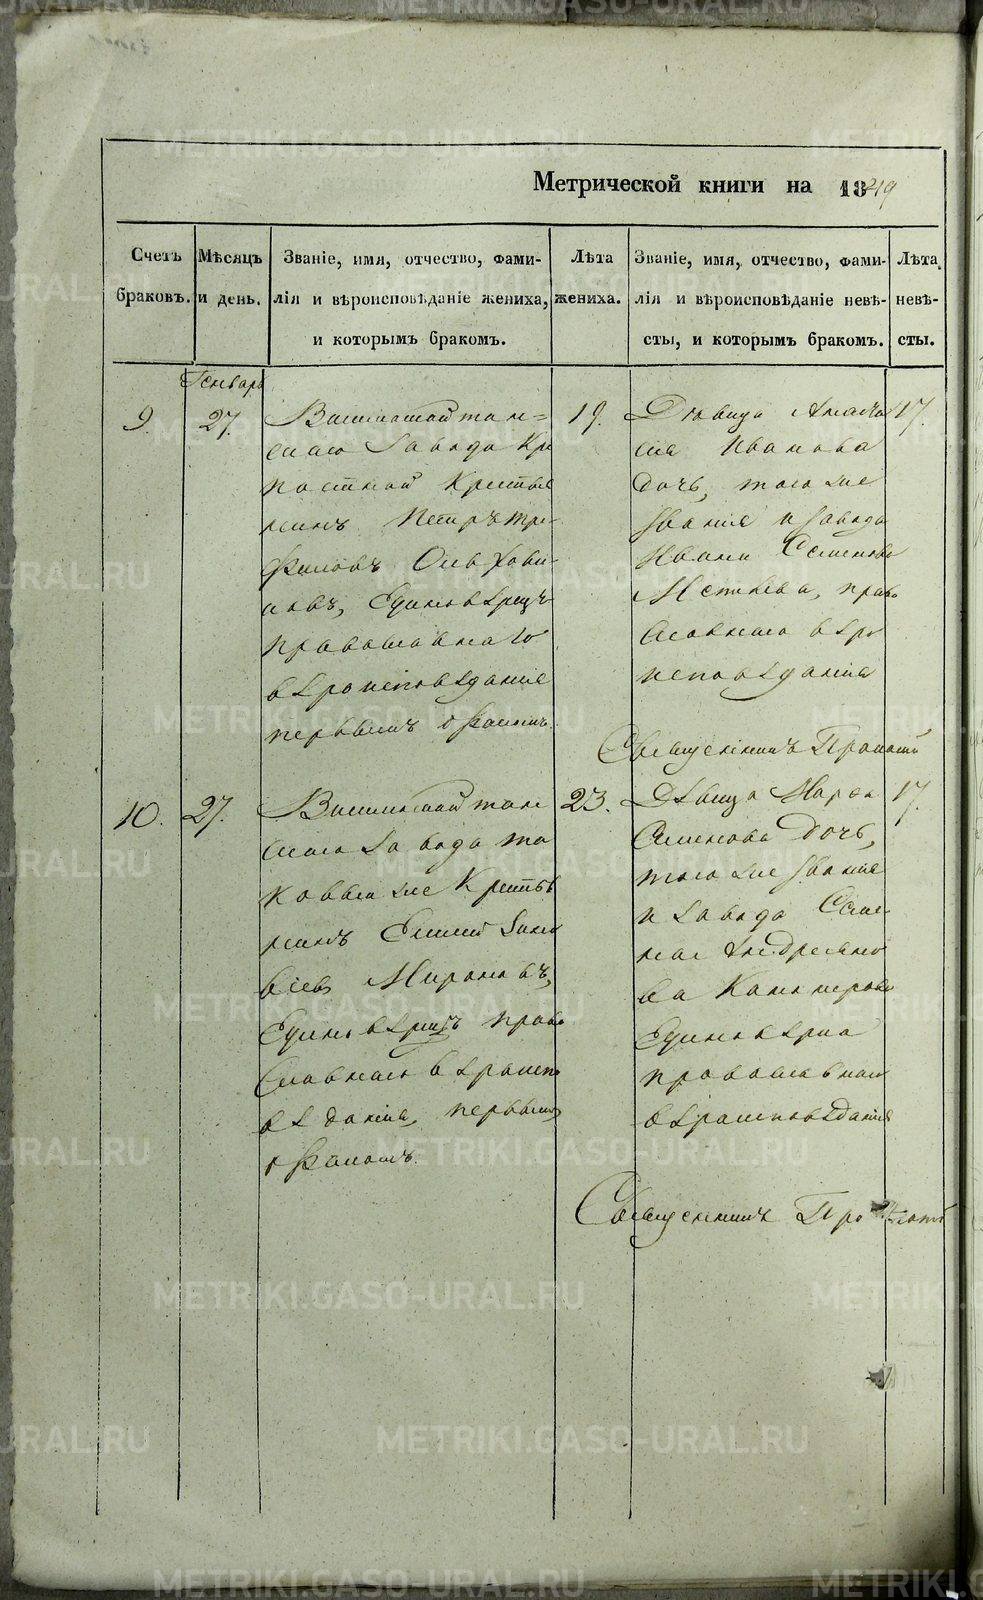 Метрической книги на 1849
Счетъ браковъ.
Мѣсяцъ и день.
Званіе, имя, отчество, фами-
лія и вѣроисповѣданіе жениха,
и которымъ бракомъ.
Лѣта жениха.
Званіе, имя, отчество, фами-
лія и вѣроисповѣданіе невѣ-
сты, и которымъ бракомъ.
Лѣта невѣ-
сты.
Генварь
9.
27.
скаго Завода Крѣ
постной Крестья
нинъ Петръ Три-
фановъ
ковъ, Единовѣрецъ
православнаго
вѣроисповѣданія
первымъ бракомъ.
19.
Дѣвица
сія Иванова
дочь, того же
званія и завода
Ивана Семенова
право
славнаго вѣро
исповѣданія
17.
Священникъ
10.
27.
скаго Завода та
ковый же Крестья
нинъ
вьевъ Мироновъ,
Единовѣрецъ право
славнаго вѣроиспо
вѣданія, первымъ
бракомъ.
23.
Дѣвица Марѳа
Семенова дочь,
того же званія
и завода Семе-
на Андреяно
ва
Единовѣрка
православнаго
вѣроисповѣданія
17.
Священникъ
METRIKI.GASO-URAL.RU